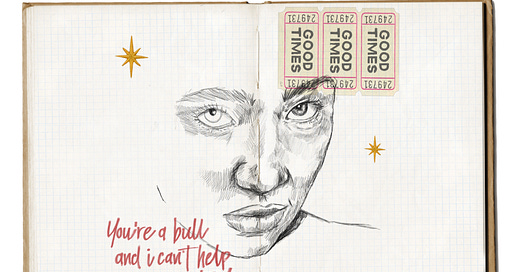 249731 249731 249731
GOOD TIMES GOOD TIMES GOOD TIMES
249731 249731 249731
You're a
and i can't help